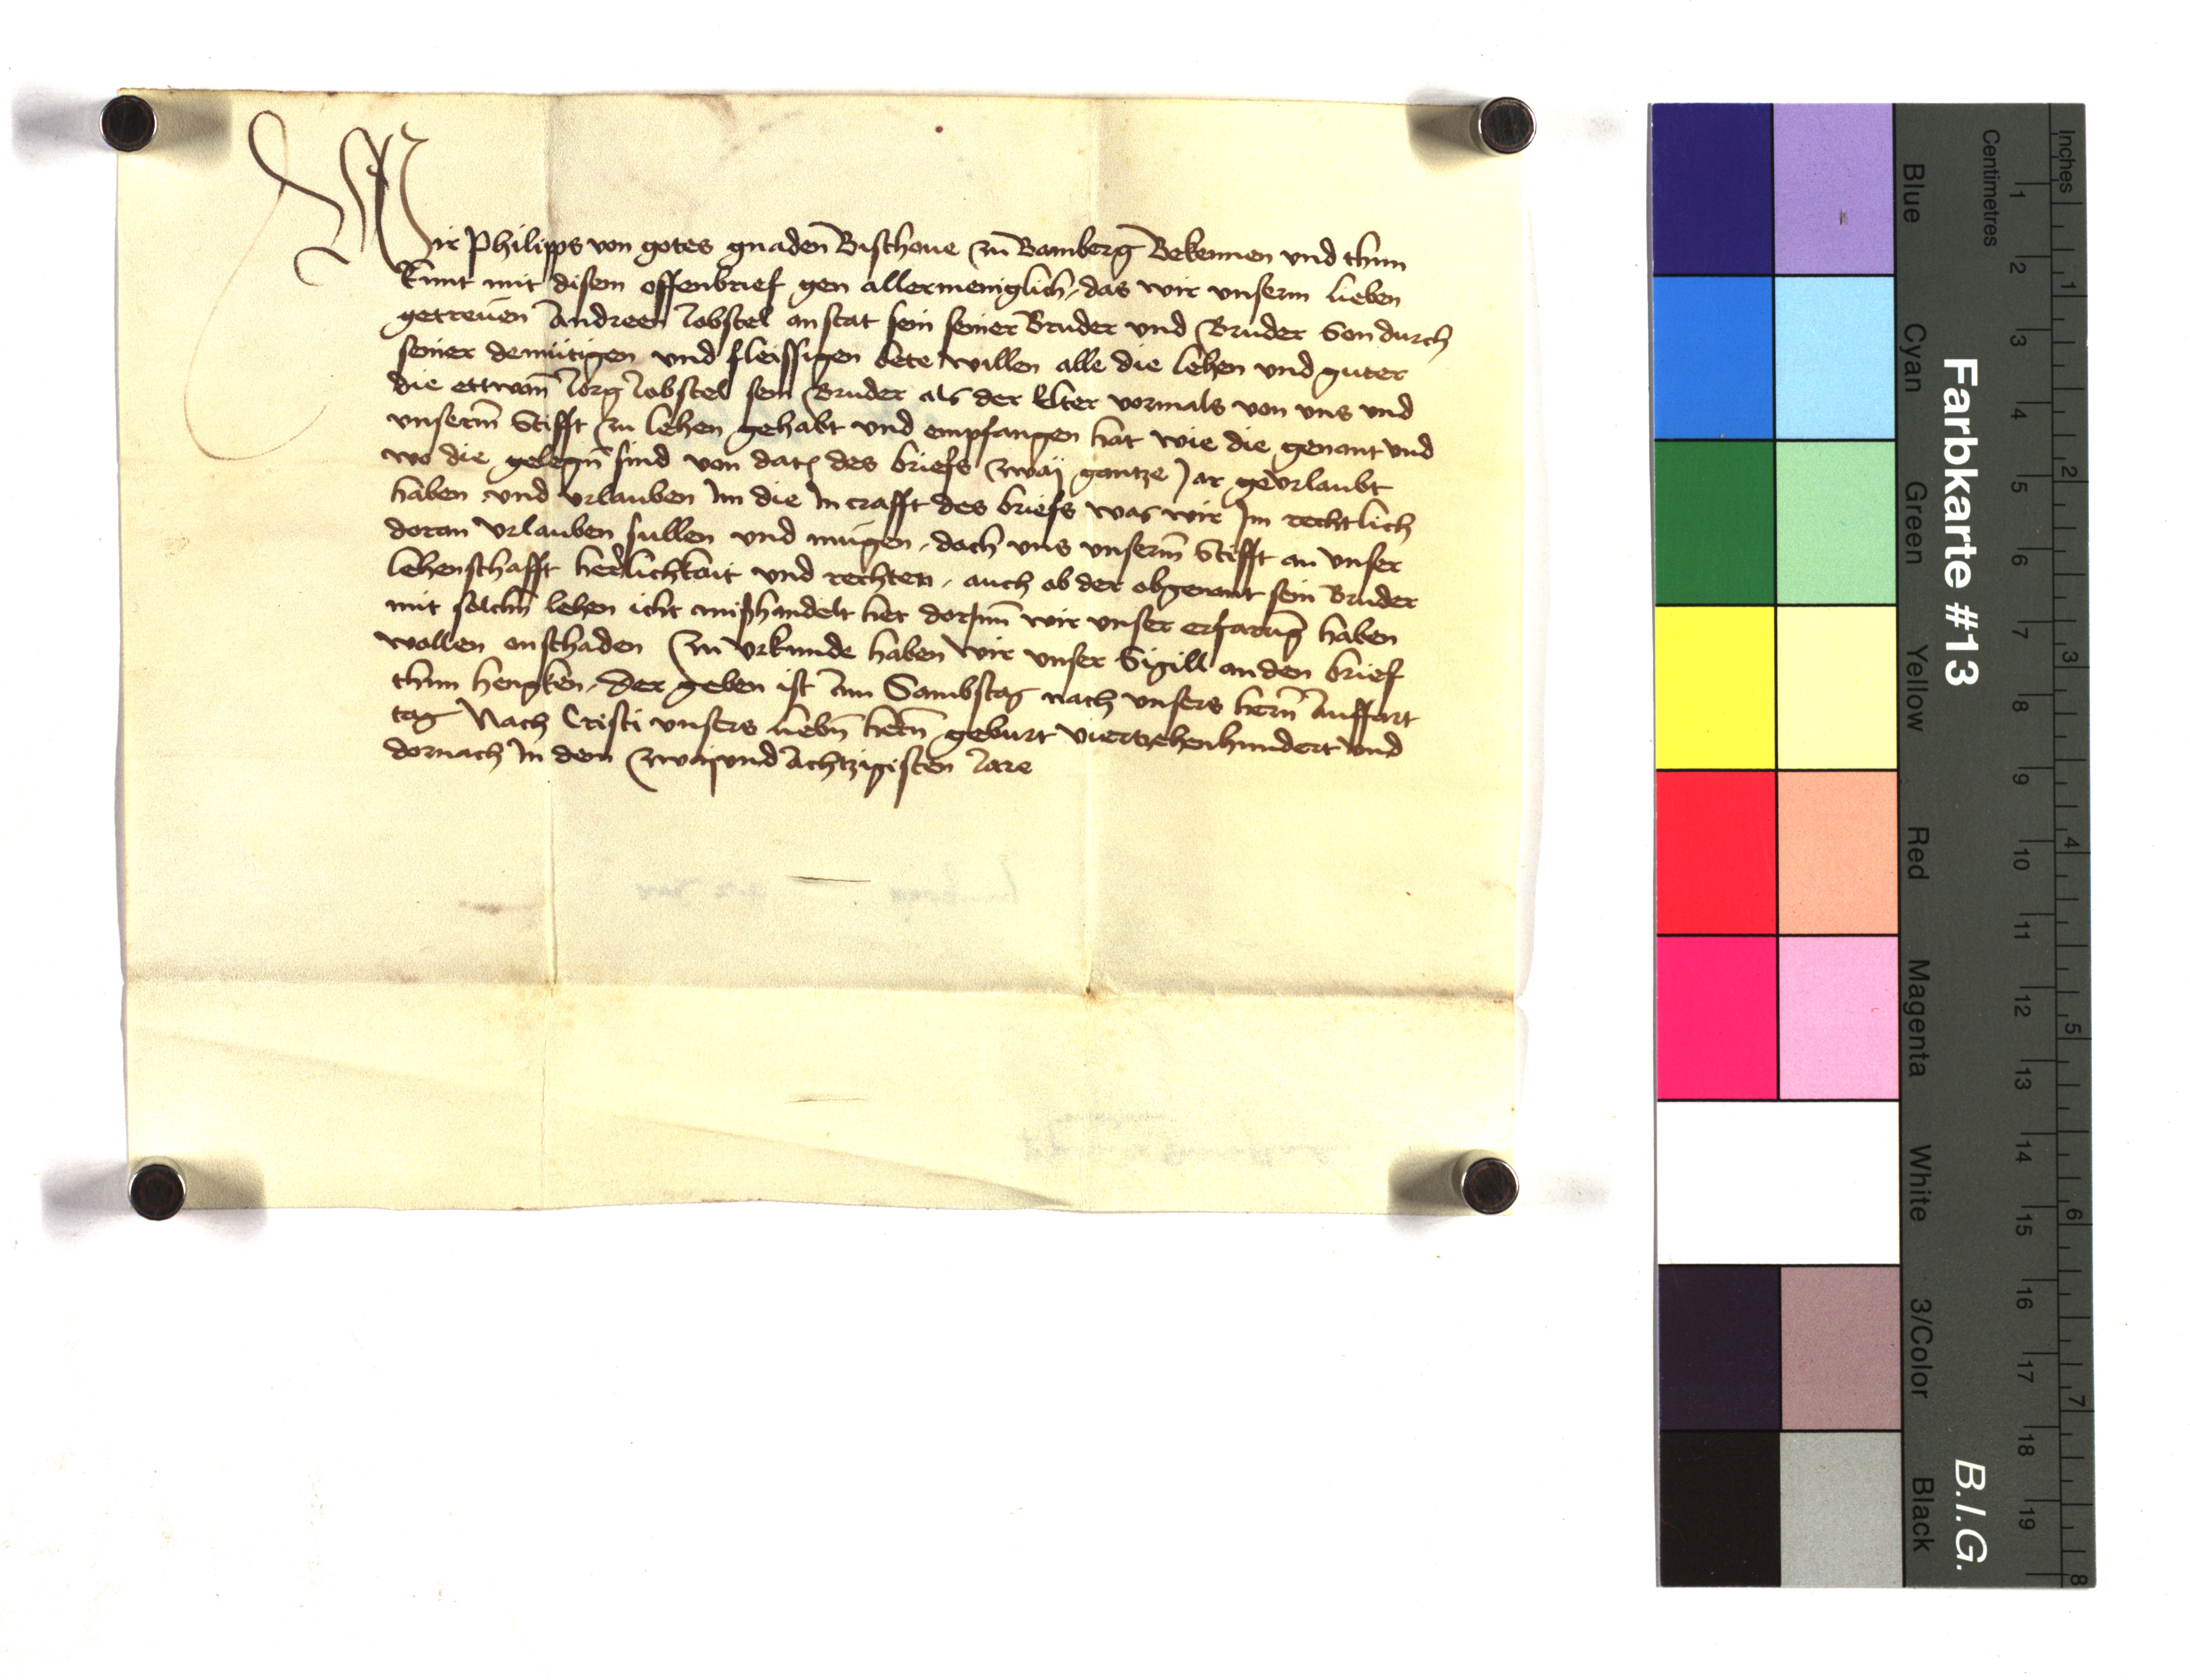 Wir Philipps von gotes gnaden Bischoue zu Bamberg Bekennen und thun
kunt mit disem offenbrief gen allermeniglich, das wir unserm lieben
getreuen Andreen Jobstel anstat sein seiner Bruder und Bruder Son durch
seiner demütigen und fleissigen bete willen alle die lehen und guter
die ettwan Jorg Jobstel sein Bruder als der Elter vormals von uns und
unserm Stifft zu lehen gehabt und empfangen hat wie die genant und
wo die gelegn sind von dato des briefs zwaÿ gantze Jar geurlaubt
haben und urlauben Im die In crafft des briefs was wir Im rechtlich
doran urlauben sullen und mügen, doch uns unserm Stifft an unser
lehenschafft herlichkait und rechten, auch ob der obgenant sein Bruder
mit solchn lehen icht mißhandelt het dorInn wir unser erfarung haben
wollen onschaden Zu Urkunde haben wir unser Sigill an den brief
thun hengken, Der geben ist Am Sambstag nach unsers hern Auffart
tag Nach Cristi unsers liebn hern geburt viertzehenhundert und
dornach In dem zwaiundachtzigisten Jare
Farbkarte #13
B.I.G.
Inches
Centimetres
1 2 3 4 5 6 7 8
1 2 3 4 5 6 7 8 9 10 11 12 13 14 15 16 17 18 19
Blue
Cyan
Green
Yellow
Red
Magenta
White
3/Color
Black